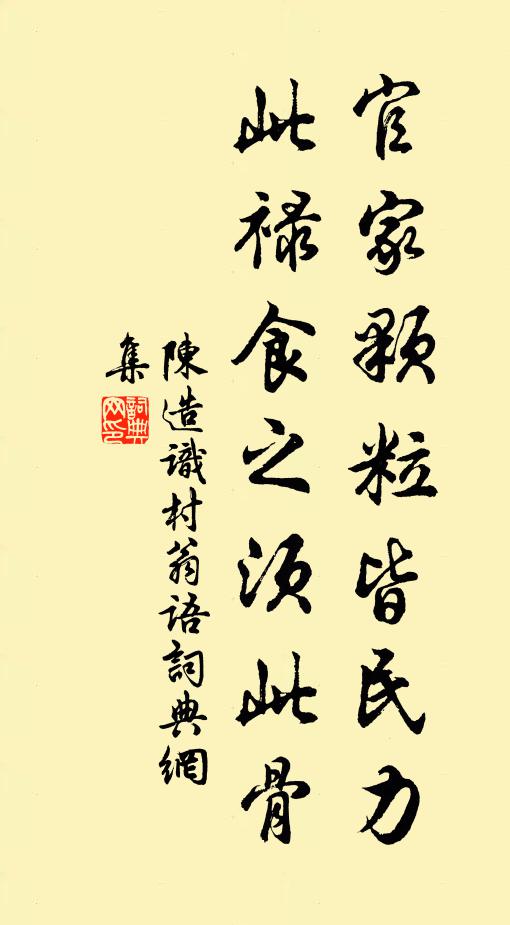 官家顆粒皆民力
此祿食之須此骨
陳造識村翁語詞典網
集
詞典
网印